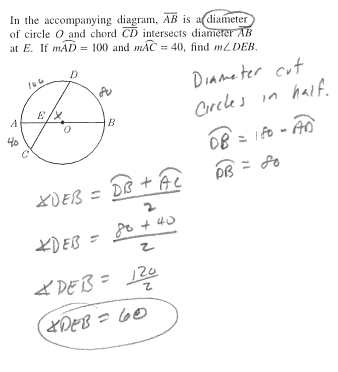 In the accompanying diagram, AB is a diameter
of circle O and chord CD intersects diameter AB
at E. If mAD = 100 and mAC = 40, find m∠DEB.
D
100
80
E
x
A
O
B
40
C
Diameter cut
Circles in half.
DB = 180 - AD
DB = 80
∠DEB = DB + AC
2
∠DEB = 80 + 40
2
∠DEB = 120
2
∠DEB = 60